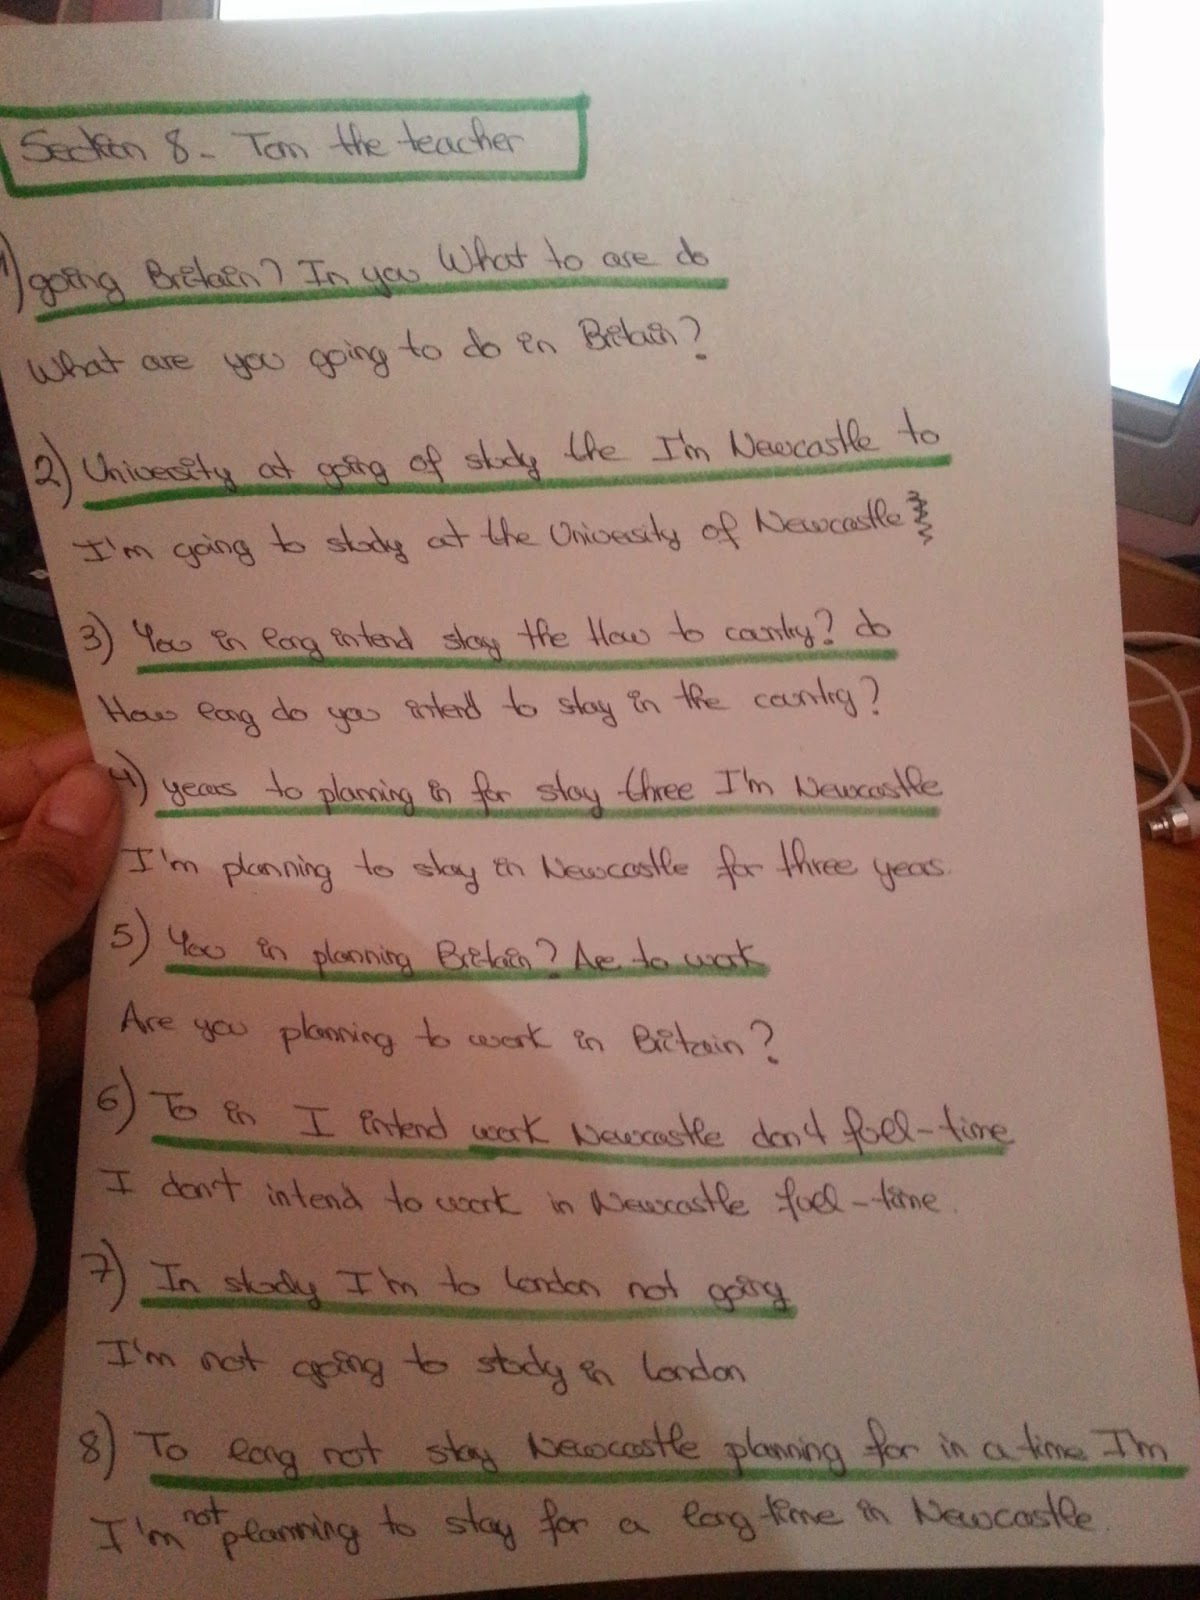 Section 8 - Tom the teacher
1) going Britain? In you What to are do
What are you going to do in Britain?
2) University at going of study the I'm Newcastle to
I'm going to study at the University of Newcastle
3) You in long intend stay the How to country? do
How long do you intend to stay in the country?
4) years to planning in for stay three I'm Newcastle
I'm planning to stay in Newcastle for three years.
5) You in planning Britain? Are to work
Are you planning to work in Britain?
6) To in I intend work Newcastle don't full-time
I don't intend to work in Newcastle full-time.
7) In study I'm to London not going
I'm not going to study in London
8) To long not stay Newcastle planning for in a time I'm
I'm not planning to stay for a long time in Newcastle.